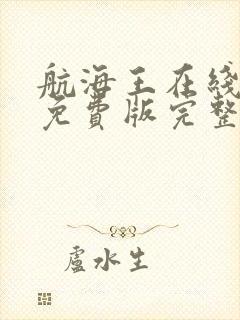 航海王在线
免費版完整
盧水生